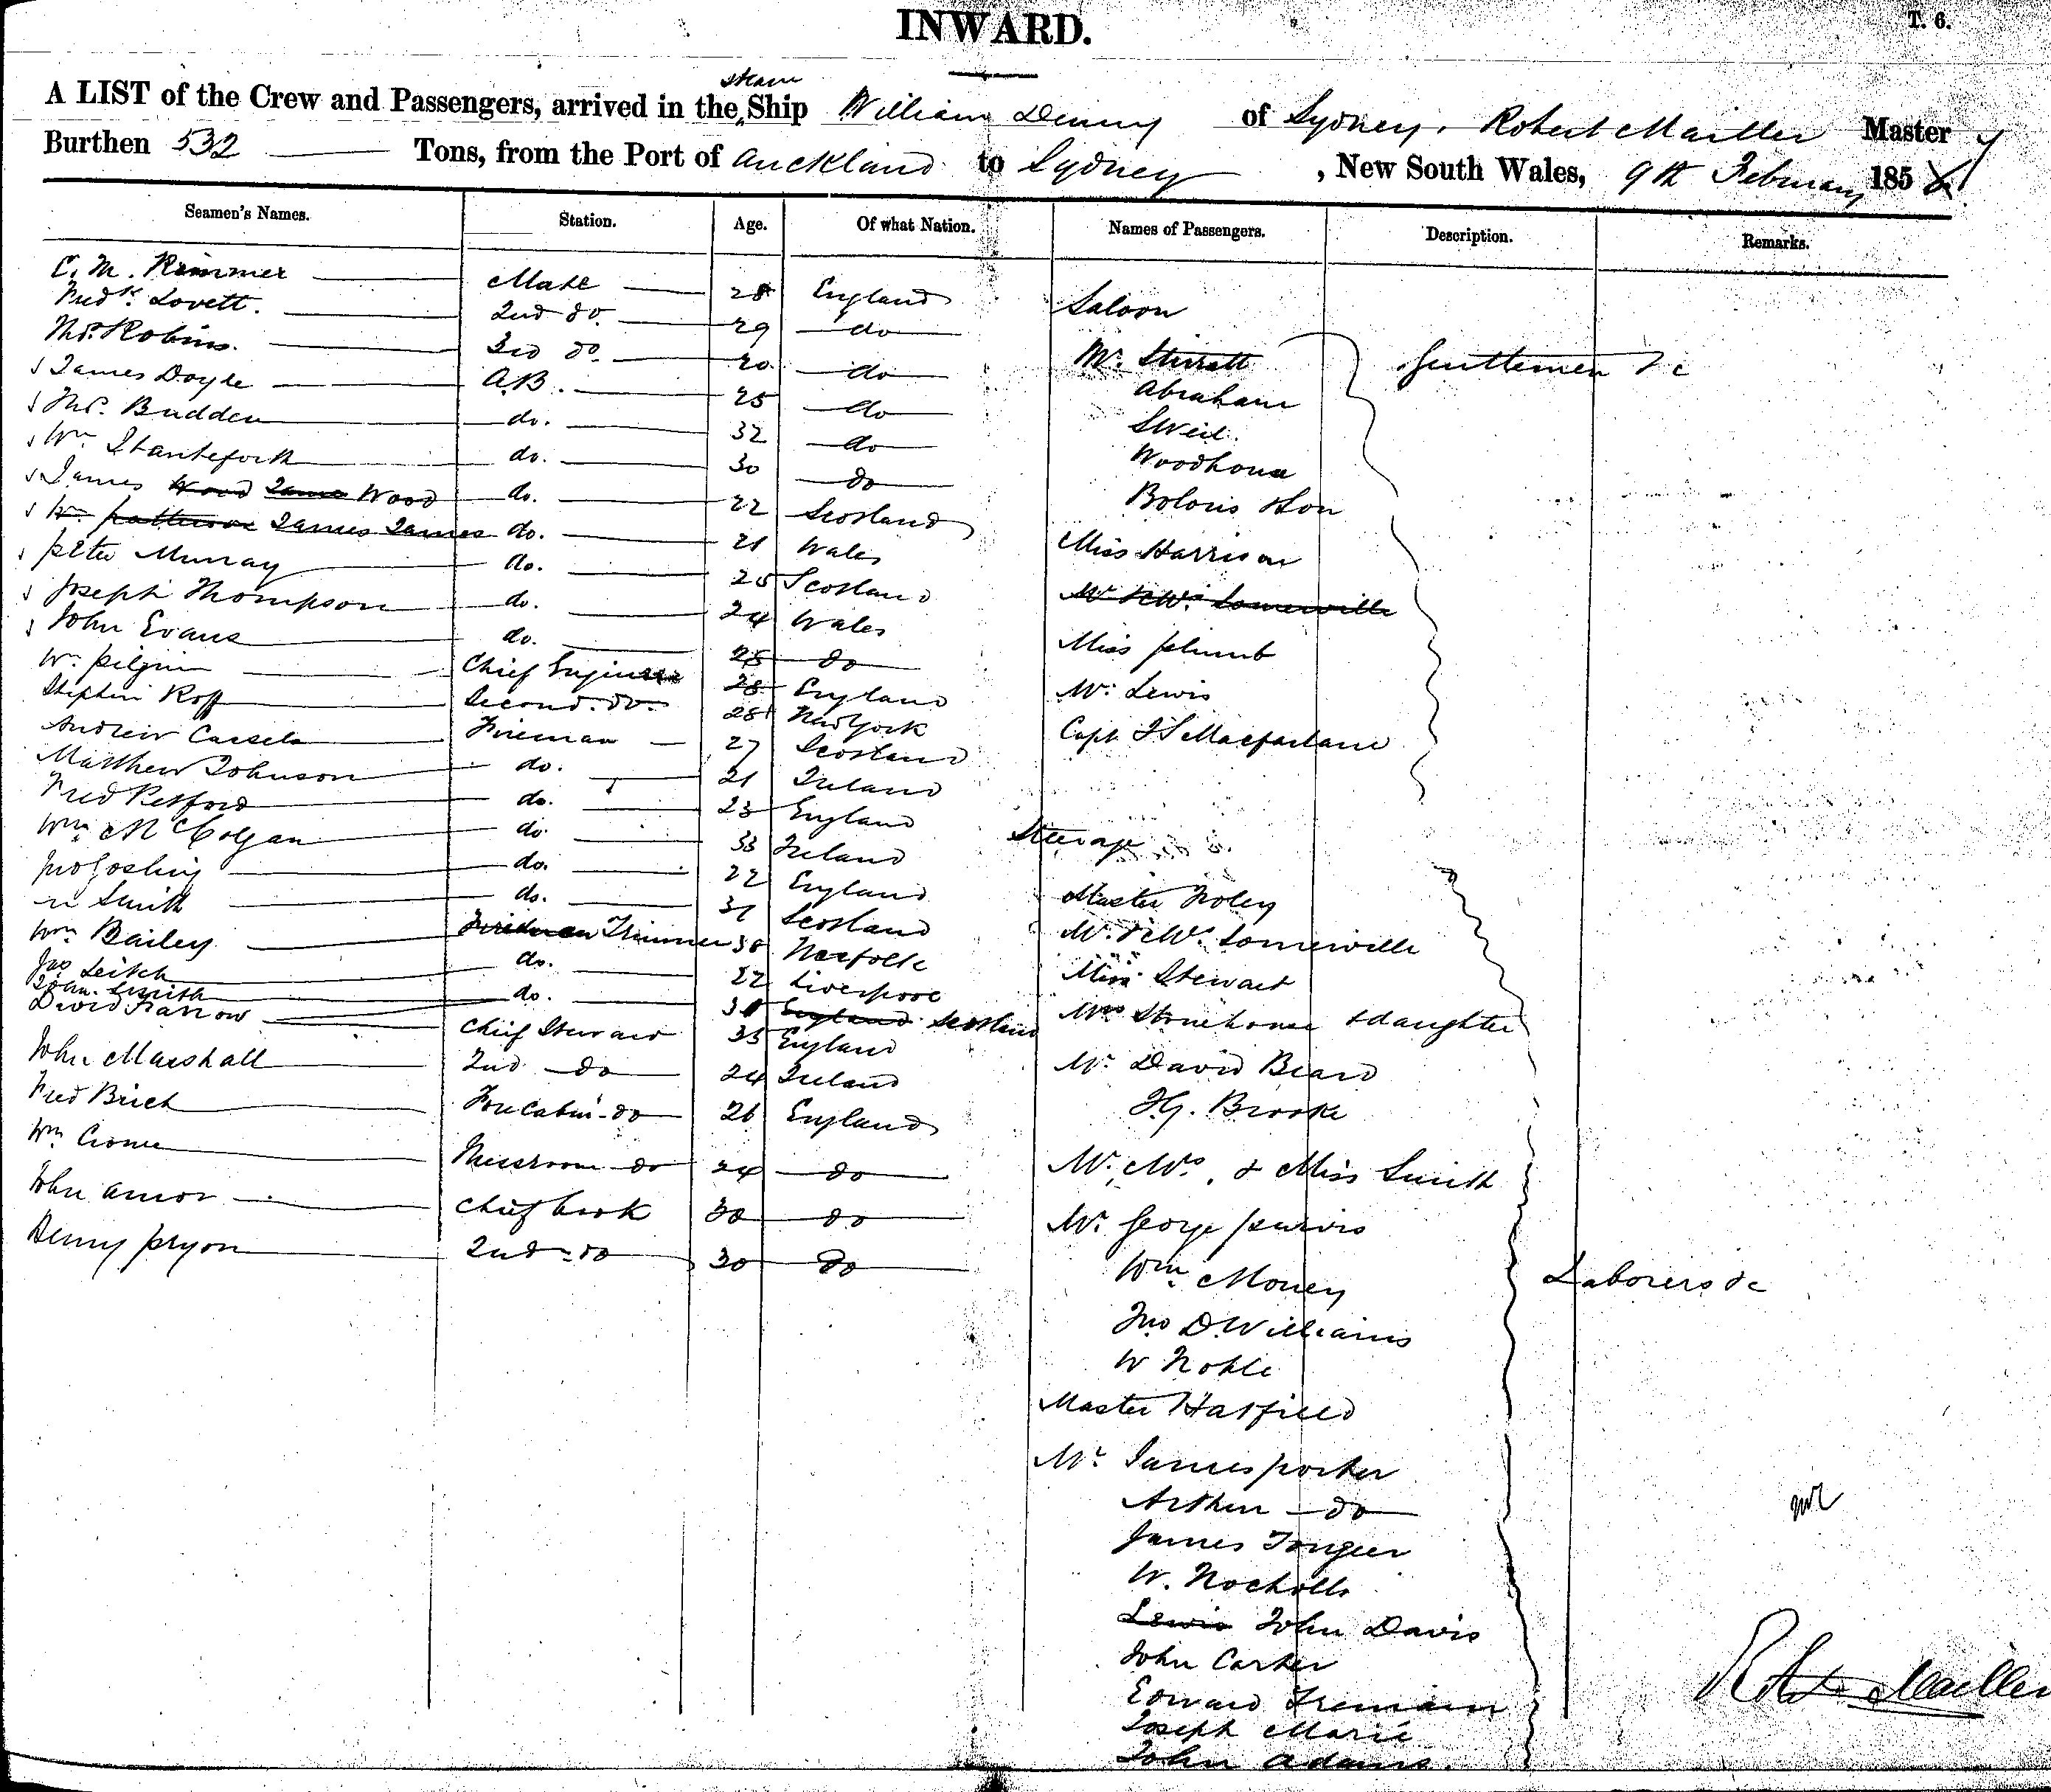 INWARD.
T. 6.
A LIST of the Crew and Passengers, arrived in the steam Ship William Denny of Sydney, Robert Mailler Master
Burthen 532 Tons, from the Port of Auckland to Sydney, New South Wales, 9th February 1857
Seamen's Names. Station. Age. Of what Nation. Names of Passengers. Description. Remarks.
C. M. Rimmer Mate 28 England
Saloon
Fredk. Lovett. 2nd do. 29 do
Thos. Robins. 3rd do. 20 do
Mr. Stirratt Gentlemen &c
James Doyle A.B. 25 do
Abraham
Thos. Budden do. 32 do
Wm do. 30 do
Woodhouse
James Wood James Wood do. 22 Scotland
& Son
Wm Patterson James James do. 21 Wales
Miss Harrison
Peter Murray do. 25 Scotland
Mr & Mrs. Somerville
Joseph Thompson do. 24 Wales
John Evans do. 25 do
Miss Plumb
Wm. Pilgrim Chief Engineer 28 England
Mr. Lewis
Stephen Roff Second do. 28 New York
Capt. J S Macfarlane
Andrew Cassels Fireman 27 Scotland
Matthew Johnson do. 21 Ireland
Fred Retford do. 23 England
Steerage
Wm McColgan do. 33 Ireland
Jno Gosling do. 22 England
Master Foley
Smith do. 31 Scotland
Mr. & Mrs. Somerville
Wm Bailey Fireman Trimmer 38 Norfolk
Miss Stewart
Jno Leitch do. 22 Liverpool
John Smith do. England Scotland
Mrs Stonehouse & daughter
David Farrow Chief Steward 35 England
John Marshall 2nd do 24 Ireland
Mr. David Beard
Fred Brich Fore Cabin do 26 England
J.G. Brooke
Wm Crome Messroom do 24 do
Mr., Mrs., & Miss Smith
John Amor Chief Cook 30 do
Mr. George Purvis
Henry Pryon 2nd do 30 do
Wm Money Laborers &c
Jno D. Williams
W Noble
Master Hatfield
Mr. James Porter
Arthur do
James
W. Nocholls
Lewis John Davis
John Carter
Robt Mailler
Edward Tremain
Joseph Marie
John Adams.